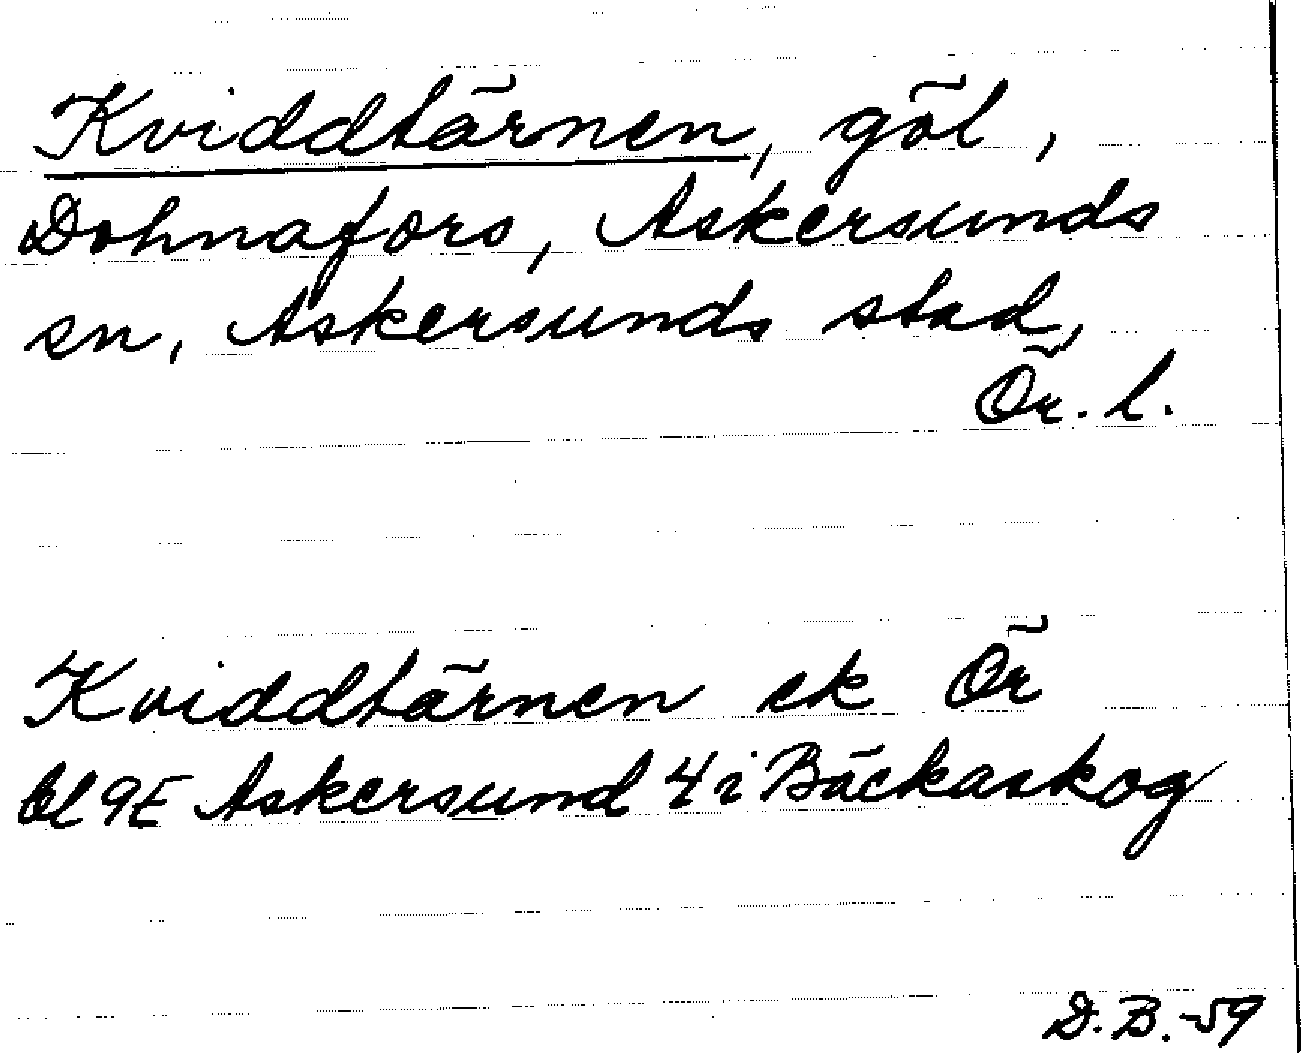 Kviddtärnen, göl,
Dohnafors, Askersunds
sn, Askersunds stad,
Ör. l.
Kviddtärnen ek Ör
bl 9E Askersund 4 i Bäckaskog
D.B.-59